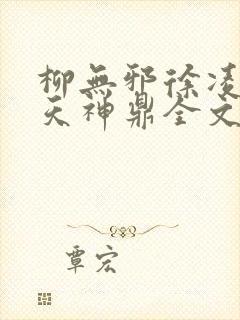 柳無邪徐凌
天神鼎全文
覃宏